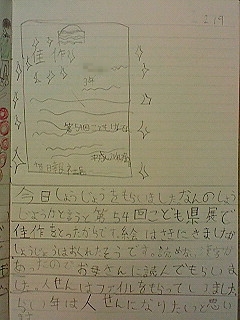 2.19
佳作
3年
第54回こども県展
朝日新聞社
今日しょうじょうをもらいましたなんのしょう
じょうかと言うと第54回こども県展で
佳作をとったからです。絵はさきにきましたが
しょうじょうはおくれたそうです。読めない漢字が
あったのでお母さんに読んでもらいま
した。入せんはファイルをもらってしました。
らい年は入せんになりたいと思い
ます